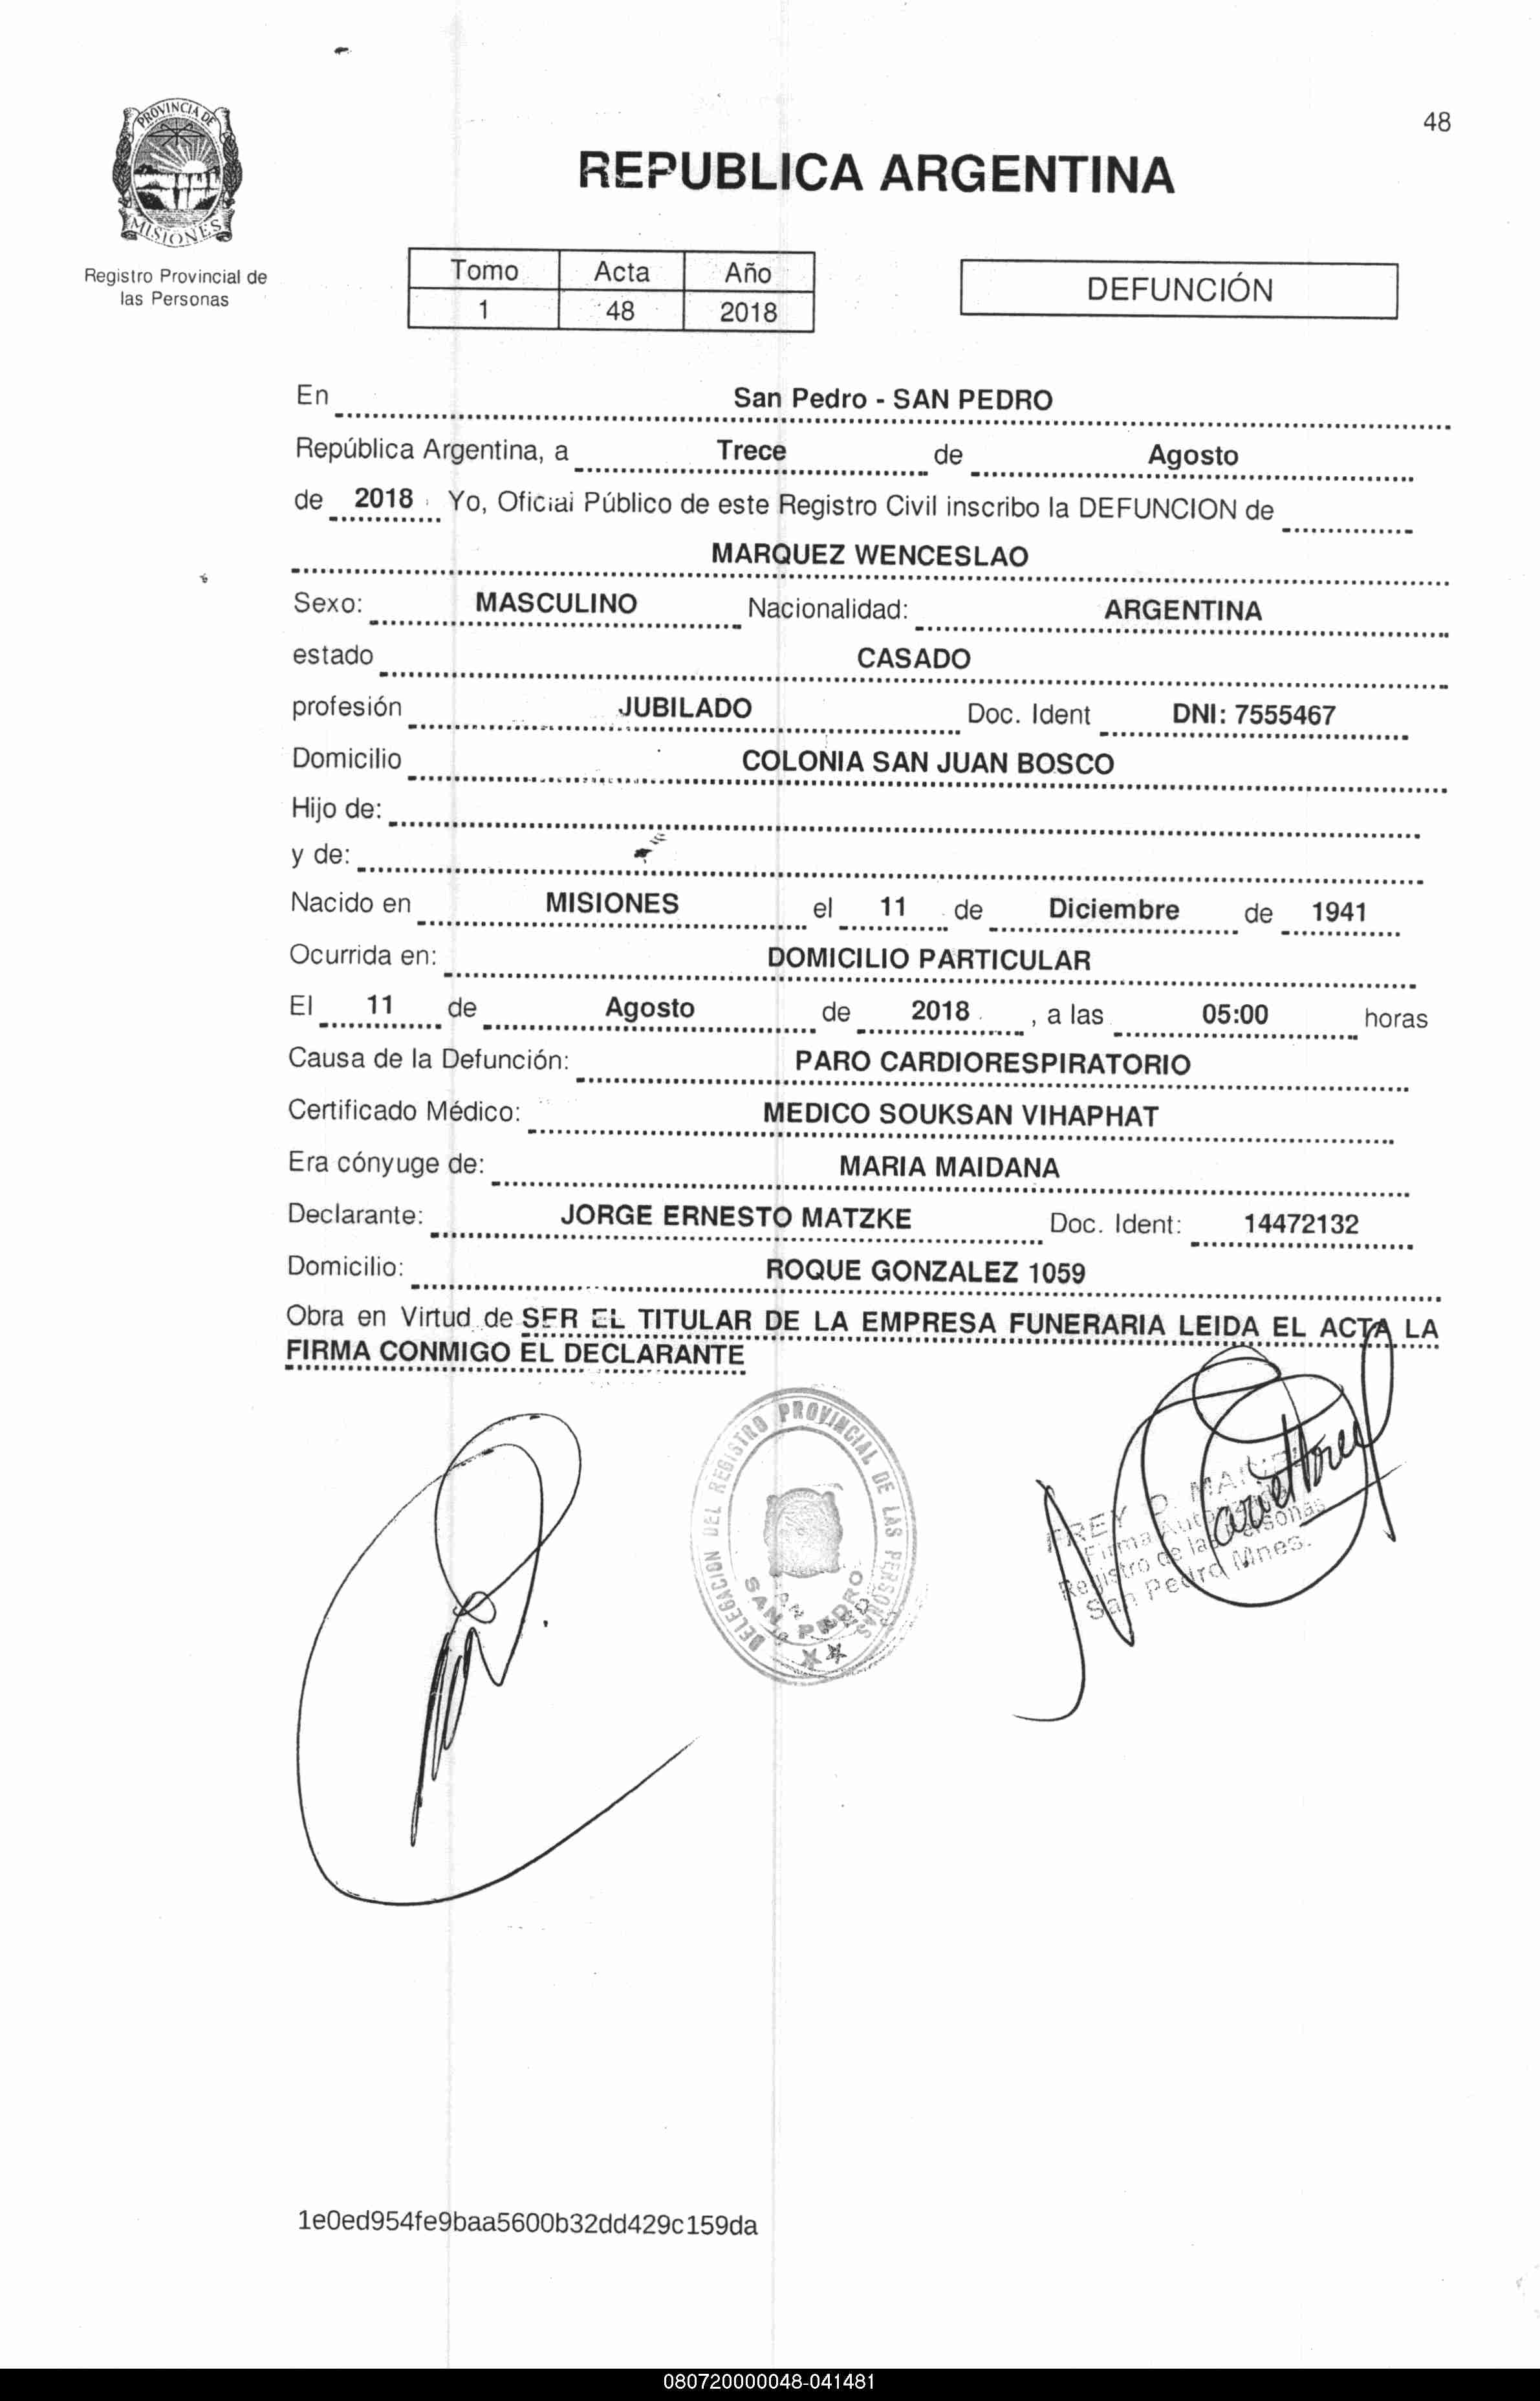 48
PROVINCIA DE
MISIONES
Registro Provincial de
las Personas
REPUBLICA ARGENTINA
Tomo Acta Año
1 48 2018
DEFUNCIÓN
En San Pedro - SAN PEDRO
República Argentina, a Trece de Agosto
de 2018 Yo, Oficial Público de este Registro Civil inscribo la DEFUNCION de
MARQUEZ WENCESLAO
Sexo: MASCULINO Nacionalidad: ARGENTINA
estado CASADO
profesión JUBILADO Doc. Ident DNI: 7555467
Domicilio COLONIA SAN JUAN BOSCO
Hijo de:
y de:
Nacido en MISIONES el 11 de Diciembre de 1941
Ocurrida en: DOMICILIO PARTICULAR
El 11 de Agosto de 2018 , a las 05:00 horas
Causa de la Defunción: PARO CARDIORESPIRATORIO
Certificado Médico: MEDICO SOUKSAN VIHAPHAT
Era cónyuge de: MARIA MAIDANA
Declarante: JORGE ERNESTO MATZKE Doc. Ident: 14472132
Domicilio: ROQUE GONZALEZ 1059
Obra en Virtud de SER EL TITULAR DE LA EMPRESA FUNERARIA LEIDA EL ACTA LA
FIRMA CONMIGO EL DECLARANTE
DELEGACION DEL REGISTRO PROVINCIAL DE LAS PERSONAS
SAN PEDRO
FREY D.
Firma
Registro de las Personas
San Pedro Mnes.
1e0ed954fe9baa5600b32dd429c159da
080720000048-041481